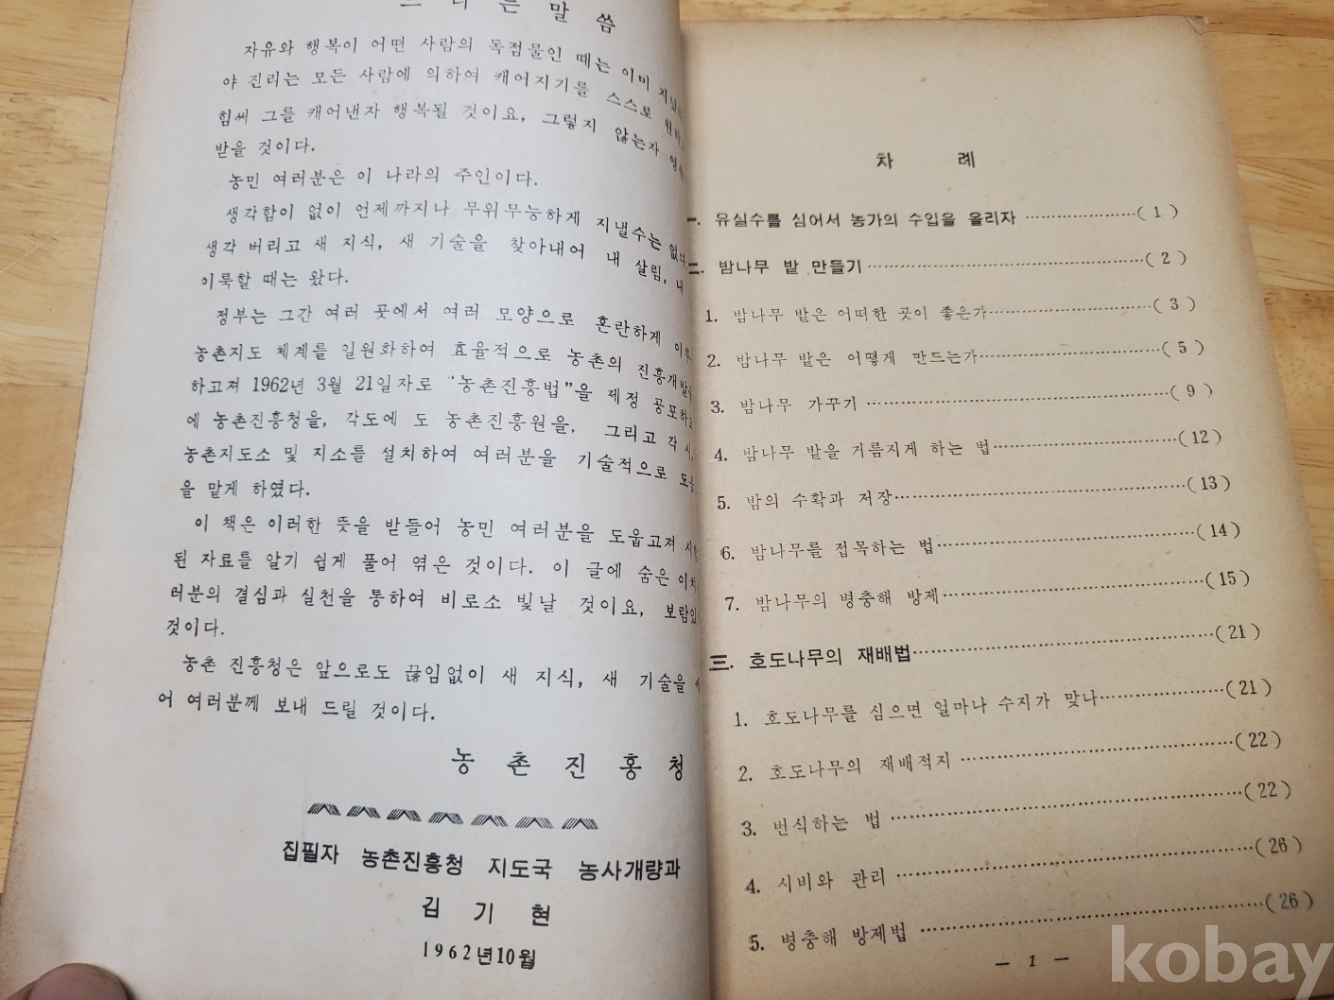 드리는 말씀
자유와 행복이 어떤 사람의 독점물인 때는 이미 지났
야 진리는 모든 사람에 의하여 캐어지기를 스스로 원하
힘써 그를 캐어낸자 행복될 것이요, 그렇지 않는자
받을 것이다.
농민 여러분은 이 나라의 주인이다.
생각함이 없이 언제까지나 무위무능하게 지낼수는 없다
생각 버리고 새 지식, 새 기술을 찾아내어 내 살림, 내
이룩할 때는 왔다.
정부는 그간 여러 곳에서 여러 모양으로 혼란하게 이루
농촌지도 체계를 일원화하여 효율적으로 농촌의 진흥개발을
하고져 1962년 3월 21일자로 "농촌진흥법"을 제정 공포하고
에 농촌진흥청을, 각도에 도 농촌진흥원을, 그리고 각 시,
농촌지도소 및 지소를 설치하여 여러분을 기술적으로 도웁
을 맡게 하였다.
이 책은 이러한 뜻을 받들어 농민 여러분을 도웁고져 시험
된 자료를 알기 쉽게 풀어 엮은 것이다. 이 글에 숨은 이치
러분의 결심과 실천을 통하여 비로소 빛날 것이요, 보람있
것이다.
농촌 진흥청은 앞으로도 끊임없이 새 지식, 새 기술을
어 여러분께 보내 드릴 것이다.
농 촌 진 흥 청
집필자 농촌진흥청 지도국 농사개량과
김 기 현
1962년10월
차 례
一. 유실수를 심어서 농가의 수입을 올리자 ……………(1)
二. 밤나무 밭 만들기 ……………(2)
1. 밤나무 밭은 어떠한 곳이 좋은가……………(3)
2. 밤나무 밭은 어떻게 만드는가……………(5)
3. 밤나무 가꾸기 ……………(9)
4. 밤나무 밭을 거름지게 하는 법……………(12)
5. 밤의 수확과 저장……………(13)
6. 밤나무를 접목하는 법……………(14)
7. 밤나무의 병충해 방제……………(15)
三. 호도나무의 재배법……………(21)
1. 호도나무를 심으면 얼마나 수지가 맞나……………(21)
2. 호도나무의 재배적지 ……………(22)
3. 번식하는 법 ……………(22)
4. 시비와 관리 ……………(26)
5. 병충해 방제법 ……………(26)
— 1 —
kobay